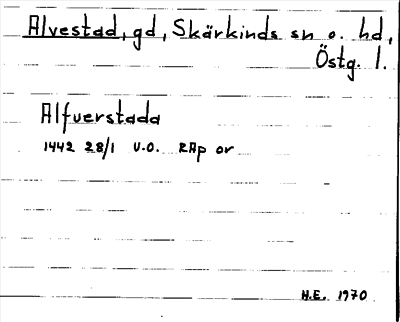 Alvestad, gd, Skärkinds sn o. hd,
Östg. l.
Alfuerstada
1442 28/1 U.O. RAp or
H.E. 1970